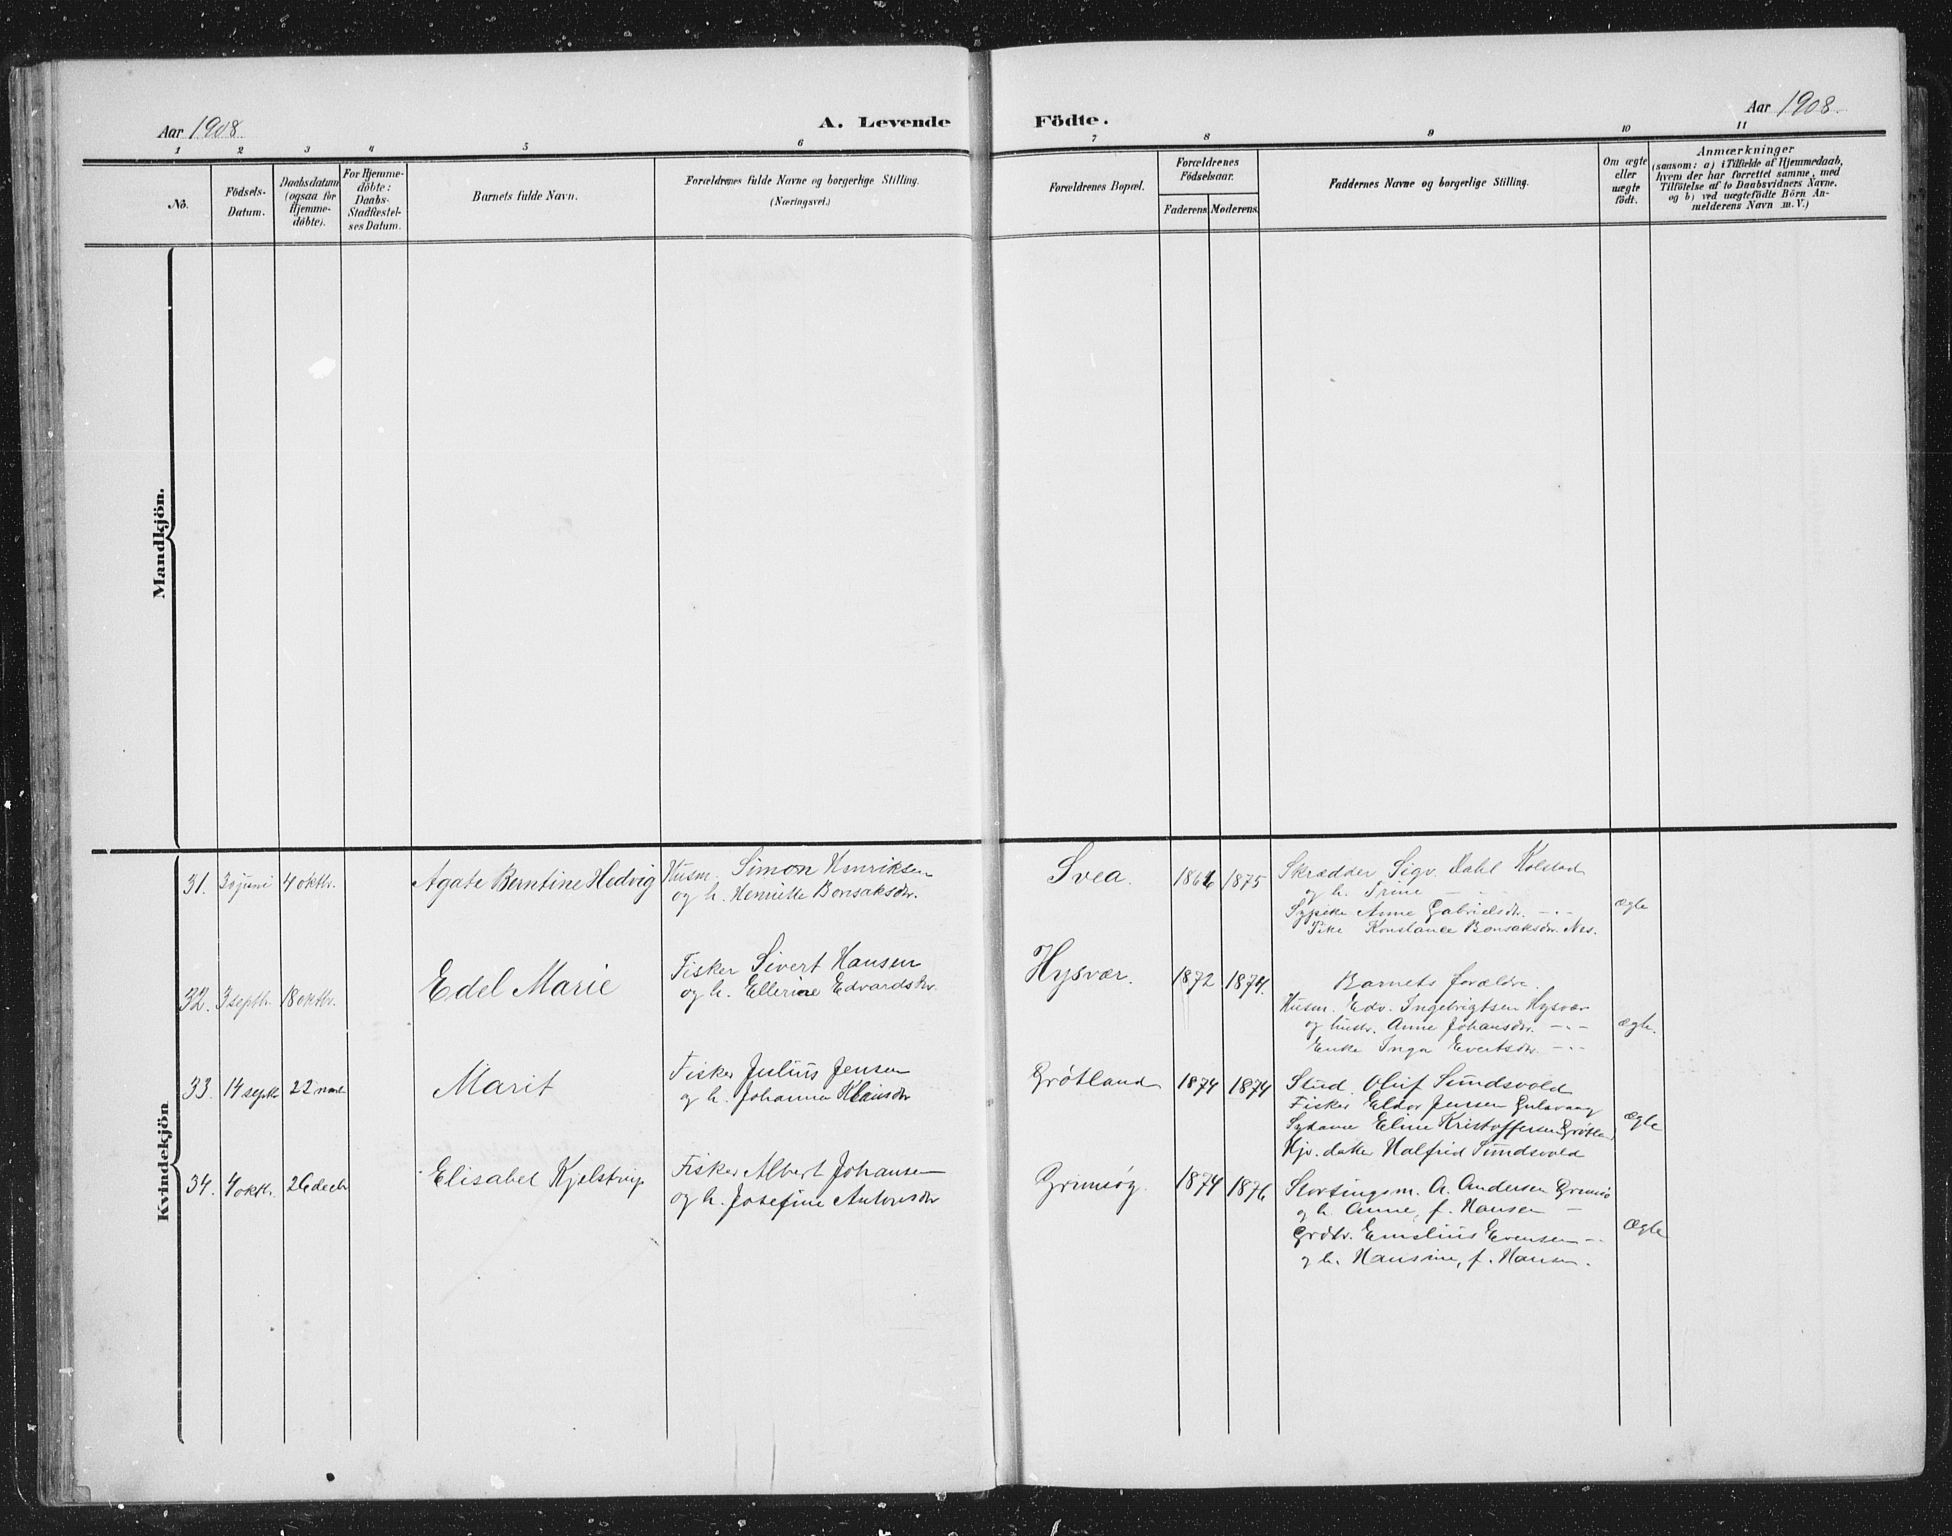 Aar 1908.
A. Levende Födte.
Aar 1908.
1 2 3 4 5 6 7 8 9 10 11
No.
Födsels-
Datum.
Daabsdatum
(ogsaa for
Hjemme-
döbte).
For Hjemme-
döbte:
Daabs-
Stadfæstel-
ses Datum.
Barnets fulde Navn.
Forældrenes fulde Navne og borgerlige Stilling.
(Næringsvei.)
Forældrenes Bopæl.
Forældrenes
Födselsaar.
Faderens Moderens.
Faddernes Navne og borgerlige Stilling.
Om ægte
eller
uægte
födt.
Anmærkninger
(saasom: a) i Tilfælde af Hjemmedaab,
hvem der har forrettet samme, med
Tilföielse af to Daabsvidners Navne.
og b) ved uægtefödte Börn An-
melderens Navn m. V.)
Mandkjön.
Kvindekjön
31. 30 juni 4 oktbr. Agate Berntine Hedvig
Husm. Simon Henriksen
og h. Henriette Bonsaksdtr.
Svea. 1875
Skrædder Sigv. Dahl Kolstad
og h. Trine — -
Sypike Anne Gabrielsdtr. - - -
Pike Konstance Bonsaksdtr. Nes.
ægte
32. 3 septbr. 18 oktbr. Edel Marie
Fisker Sivert Hansen
og h. Ellerine Edvardsdtr.
Hysvær. 1872 1874.
Barnets forældre.
Husm. Edv. Ingebrigtsen Hysvær
og hustr. Anne Johansdtr. - - -
Enke Inga Evertsdtr. - - -
ægte.
33. 14 septbr 22 novbr Marit
Fisker Julius Jensen
og h. Johanna Klausdtr
Grötland 1874 1874
Stud. Oluf Sundsvold
Fisker Eldor Jensen Gulsvaag
Sydame Eline Kristoffersen Grötland
Hjv. datter Halfrid Sundsvold
ægte
34. 4 oktbr. 26 decb Elisabet Kjelstrup
Fisker Albert Johansen
og h. Josefine Antonsdtr
Grimsöy. 1874 1876
Stortingsm. A. Andersen Grimsö
og h. Anne, f. Hansen —
Grdbr. Emelius Evensen - -
og h. Hansine, f. Hansen.
Ægte